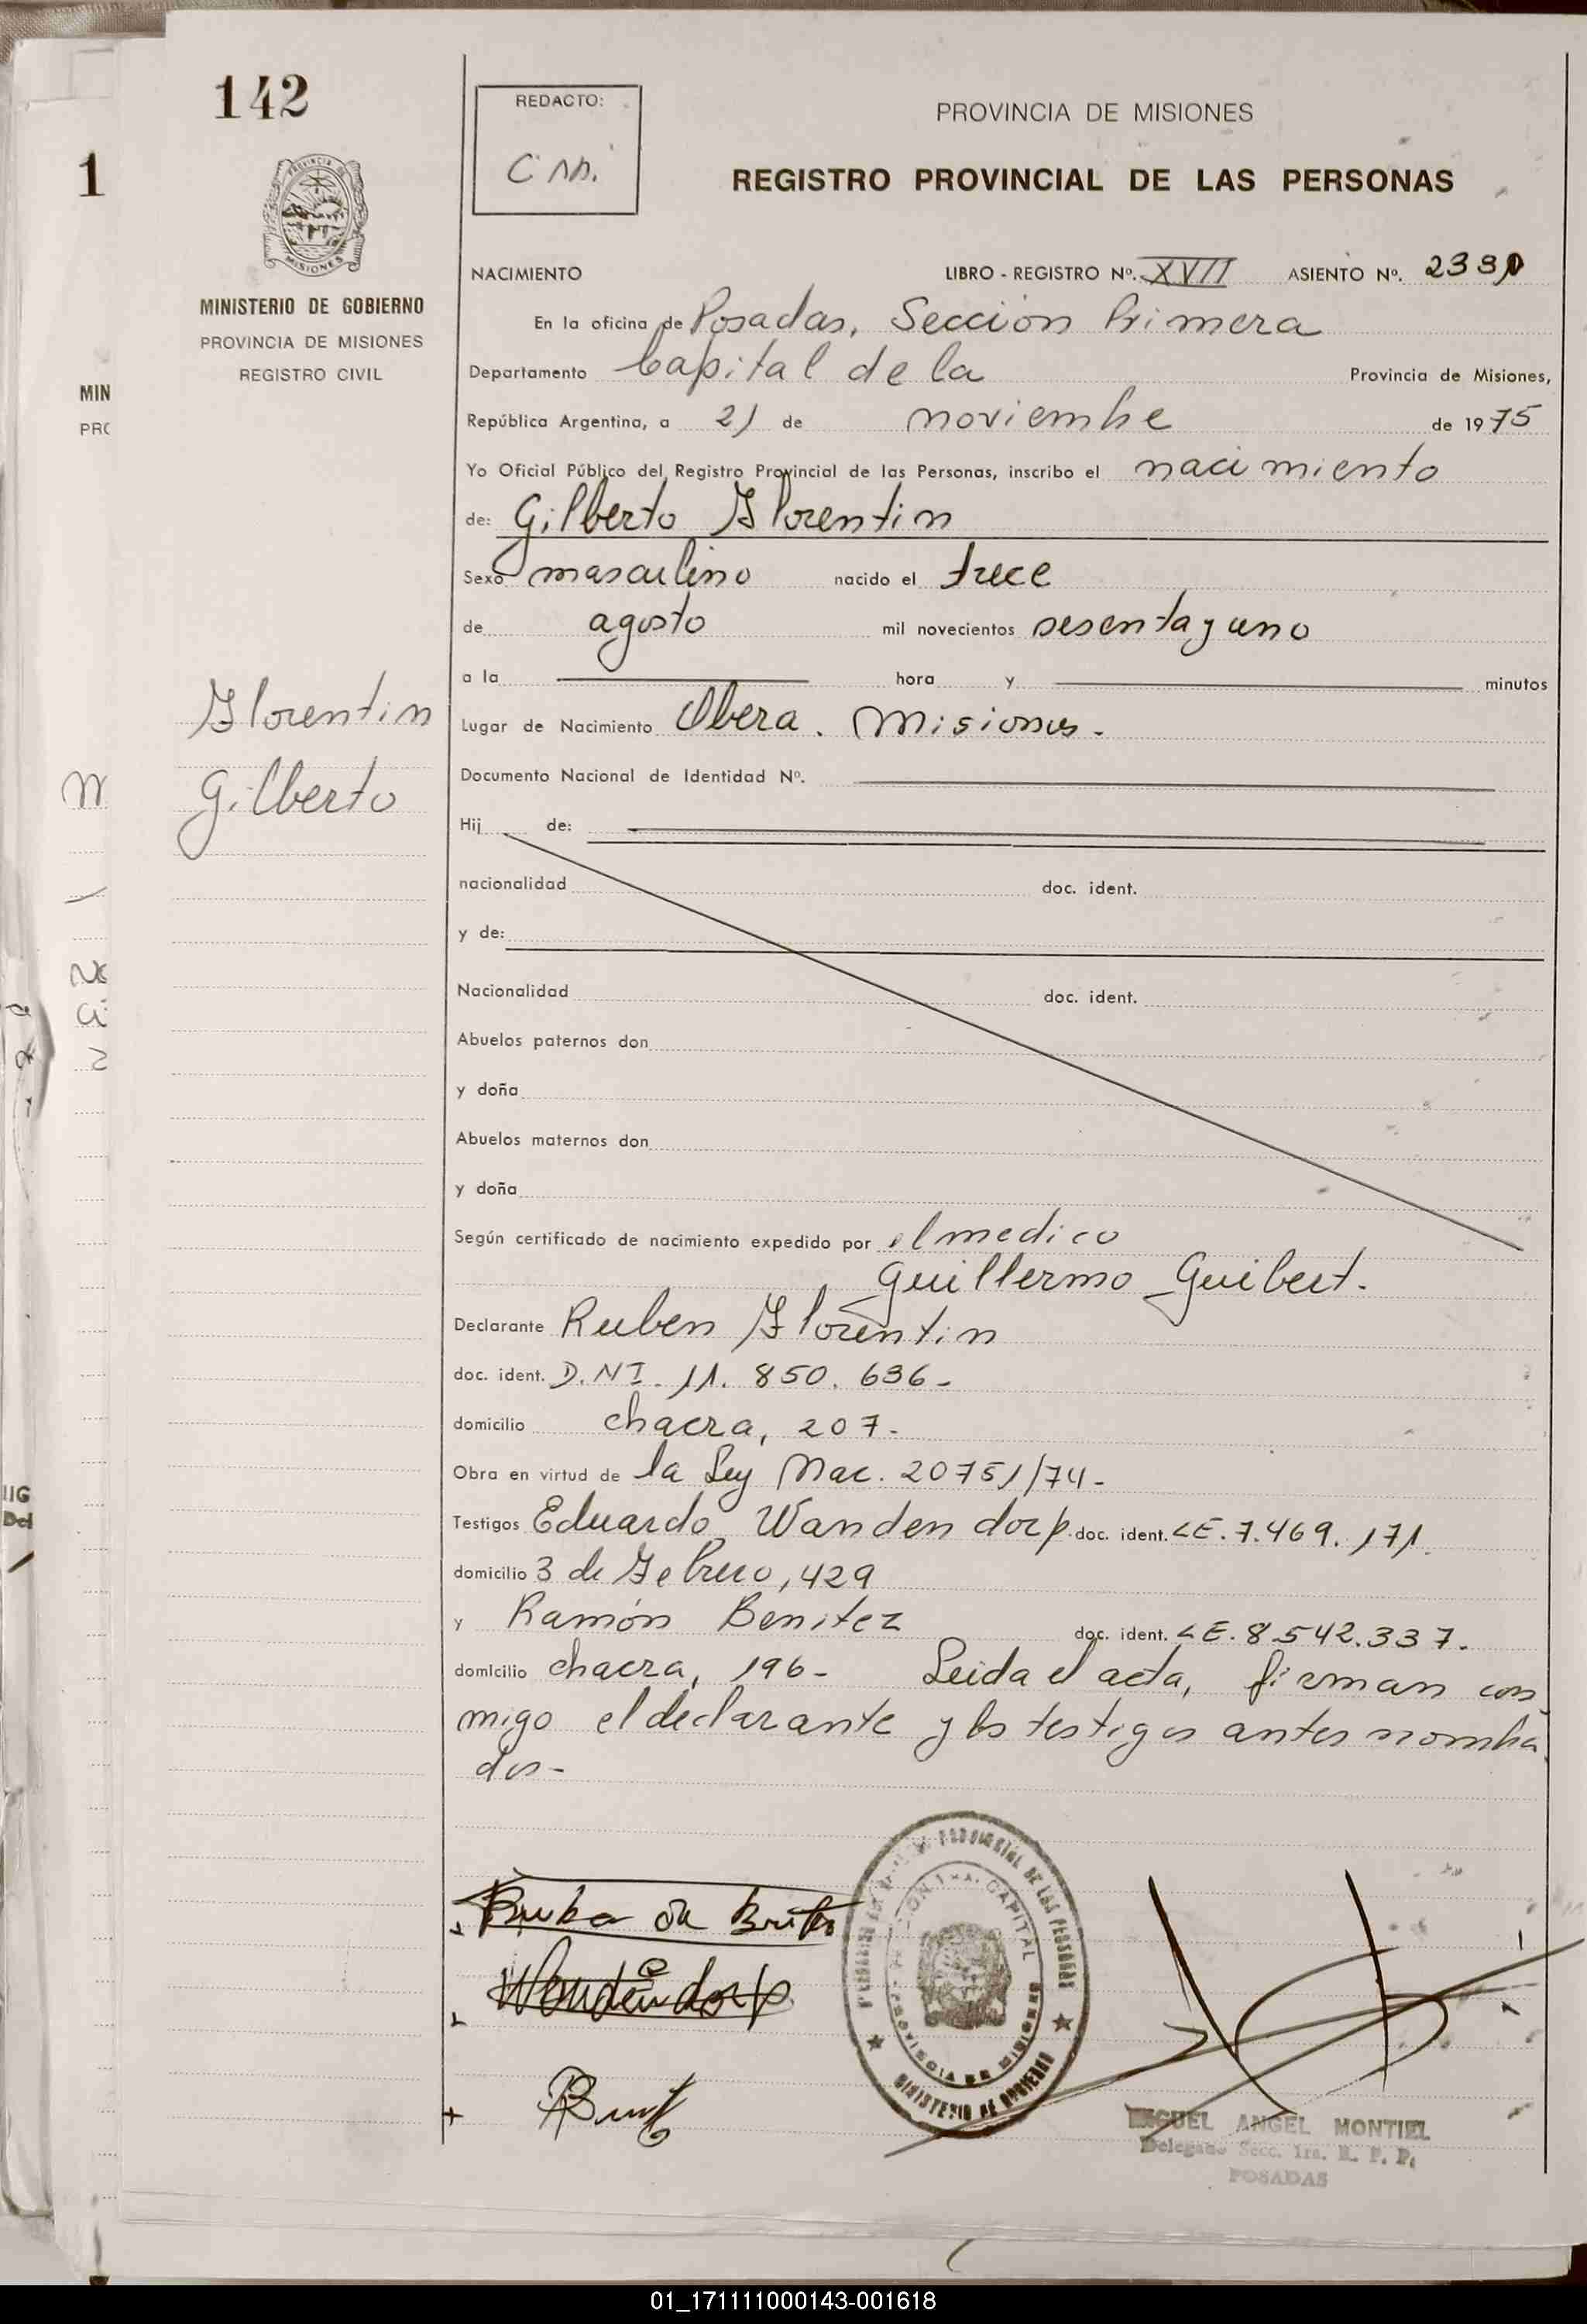 142
1
MINISTERIO DE GOBIERNO
PROVINCIA DE MISIONES
REGISTRO CIVIL
MIN
PRC
Florentin
Gilberto
REDACTO:
PROVINCIA DE MISIONES
REGISTRO PROVINCIAL DE LAS PERSONAS
NACIMIENTO LIBRO - REGISTRO Nº. XVII ASIENTO Nº.
En la oficina de Posadas, Sección Primera
Departamento Capital de la Provincia de Misiones,
República Argentina, a 21 de noviembre de 1975
Yo Oficial Público del Registro Provincial de las Personas, inscribo el nacimiento
de: Gilberto Florentin
Sexo masculino nacido el trece
de agosto mil novecientos sesenta y uno
a la hora y minutos
Lugar de Nacimiento Obera. Misiones.
Documento Nacional de Identidad Nº.
Hij de:
nacionalidad doc. ident.
y de:
Nacionalidad doc. ident.
Abuelos paternos don
y doña
Abuelos maternos don
y doña
Según certificado de nacimiento expedido por el medico
Guillermo Guibert.
Declarante Ruben Florentin
doc. ident. D.NI. 11. 850. 636-
domicilio chacra, 207-
Obra en virtud de la Ley Nac. 20751/74-
Testigos Eduardo Wanden dorp. doc. ident. LE. 7.469.171.
domicilio 3 de Febrero, 429
y Ramón Benitez doc. ident. LE. 8542.337.
domicilio chacra, 196- Leida el acta, firman con
migo el declarante y los testigos antes nombra
dos-
PROVINCIA DE MISIONES
MINISTERIO DE GOBIERNO
MIGUEL ANGEL MONTIEL
Delegado Secc. 1ra. R. P. P.
POSADAS
01_171111000143-001618